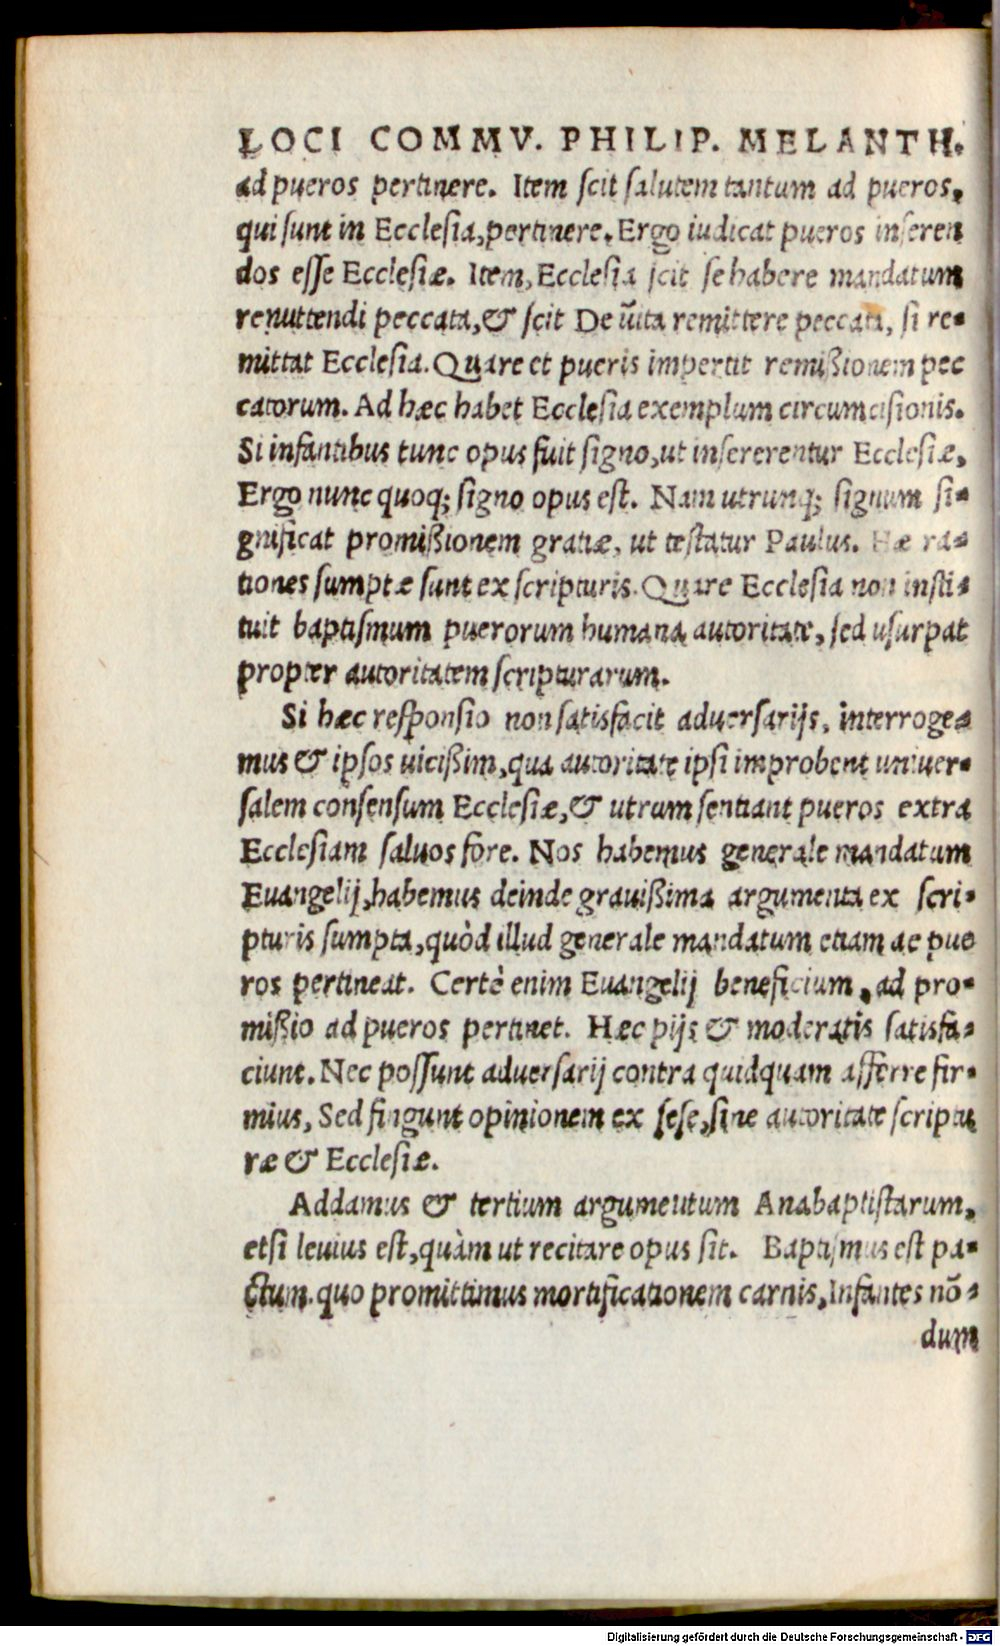 LOCI COMMV. PHILIP. MELANTH.
ad pueros pertinere. Item scit salutem tantum ad pueros,
qui sunt in Ecclesia, pertinere. Ergo iudicat pueros inseren
dos esse Ecclesiæ. Item, Ecclesia scit se habere mandatum
remittendi peccata, & scit Deũ ita remittere peccata, si re-
mittat Ecclesia. Quare et pueris impertit remißionem pec
catorum. Ad hæc habet Ecclesia exemplum circumcisionis.
Si infantibus tunc opus fuit signo, ut insererentur Ecclesiæ,
Ergo nunc quoq; signo opus est. Nam utrunq; signum si-
gnificat promißionem gratiæ, ut testatur Paulus. Hæ ra-
tiones sumptæ sunt ex scripturis. Quare Ecclesia non insti-
tuit baptismum puerorum humana autoritate, sed usurpat
propter autoritatem scripturarum.
Si hæc responsio non satisfacit aduersarijs, interroge-
mus & ipsos uicißim, qua autoritate ipsi improbent uniuer-
salem consensum Ecclesiæ, & utrum sentiant pueros extra
Ecclesiam saluos fore. Nos habemus generale mandatum
Euangelij, habemus deinde grauißima argumenta ex scri-
pturis sumpta, quòd illud generale mandatum etiam ac pue
ros pertineat. Certè enim Euangelij beneficium, ad pro-
mißio ad pueros pertinet. Hæc pijs & moderatis satisfa-
ciunt. Nec possunt aduersarij contra quidquam afferre fir-
mius, Sed fingunt opinionem ex sese, sine autoritate scriptu
ræ & Ecclesiæ.
Addamus & tertium argumeutum Anabaptistarum,
etsi leuius est, quàm ut recitare opus sit. Baptismus est pa-
ctum. quo promittimus mortificationem carnis, Infantes nō-
dum
Digitalisierung gefördert durch die Deutsche Forschungsgemeinschaft - DFG